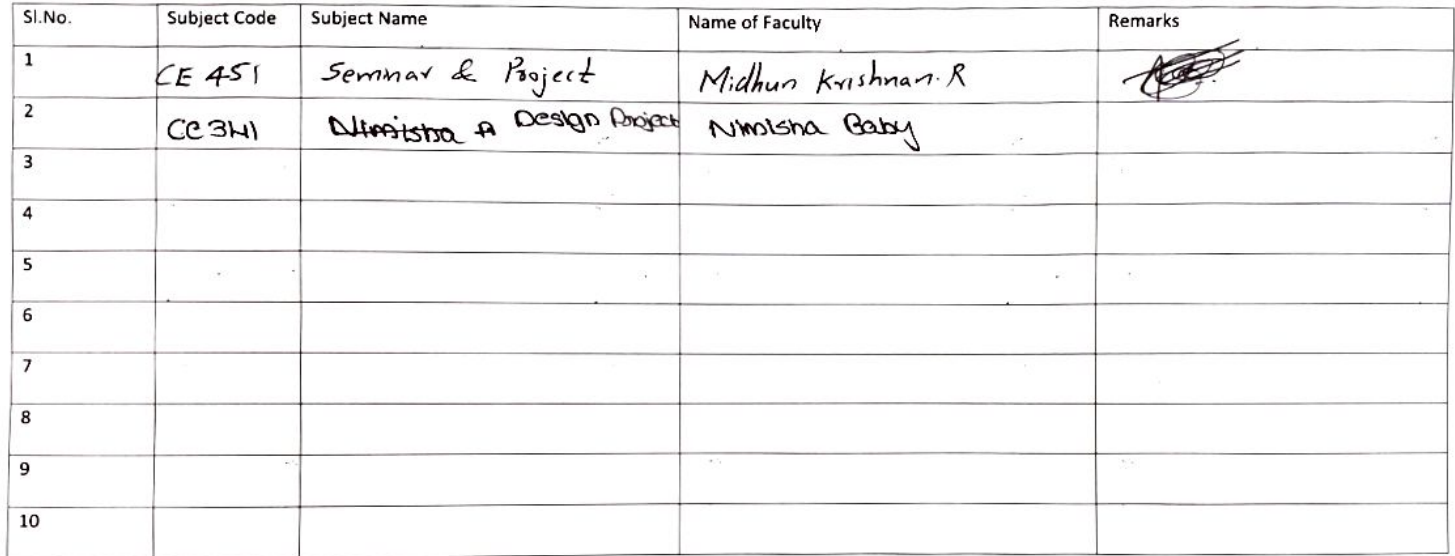 Sl.No. Subject Code Subject Name Name of Faculty Remarks
1 CE 451 Seminar & Project Midhun Krishnan. R
2 CE 341 Design Project Nimisha Baby
3
4
5
6
7
8
9
10